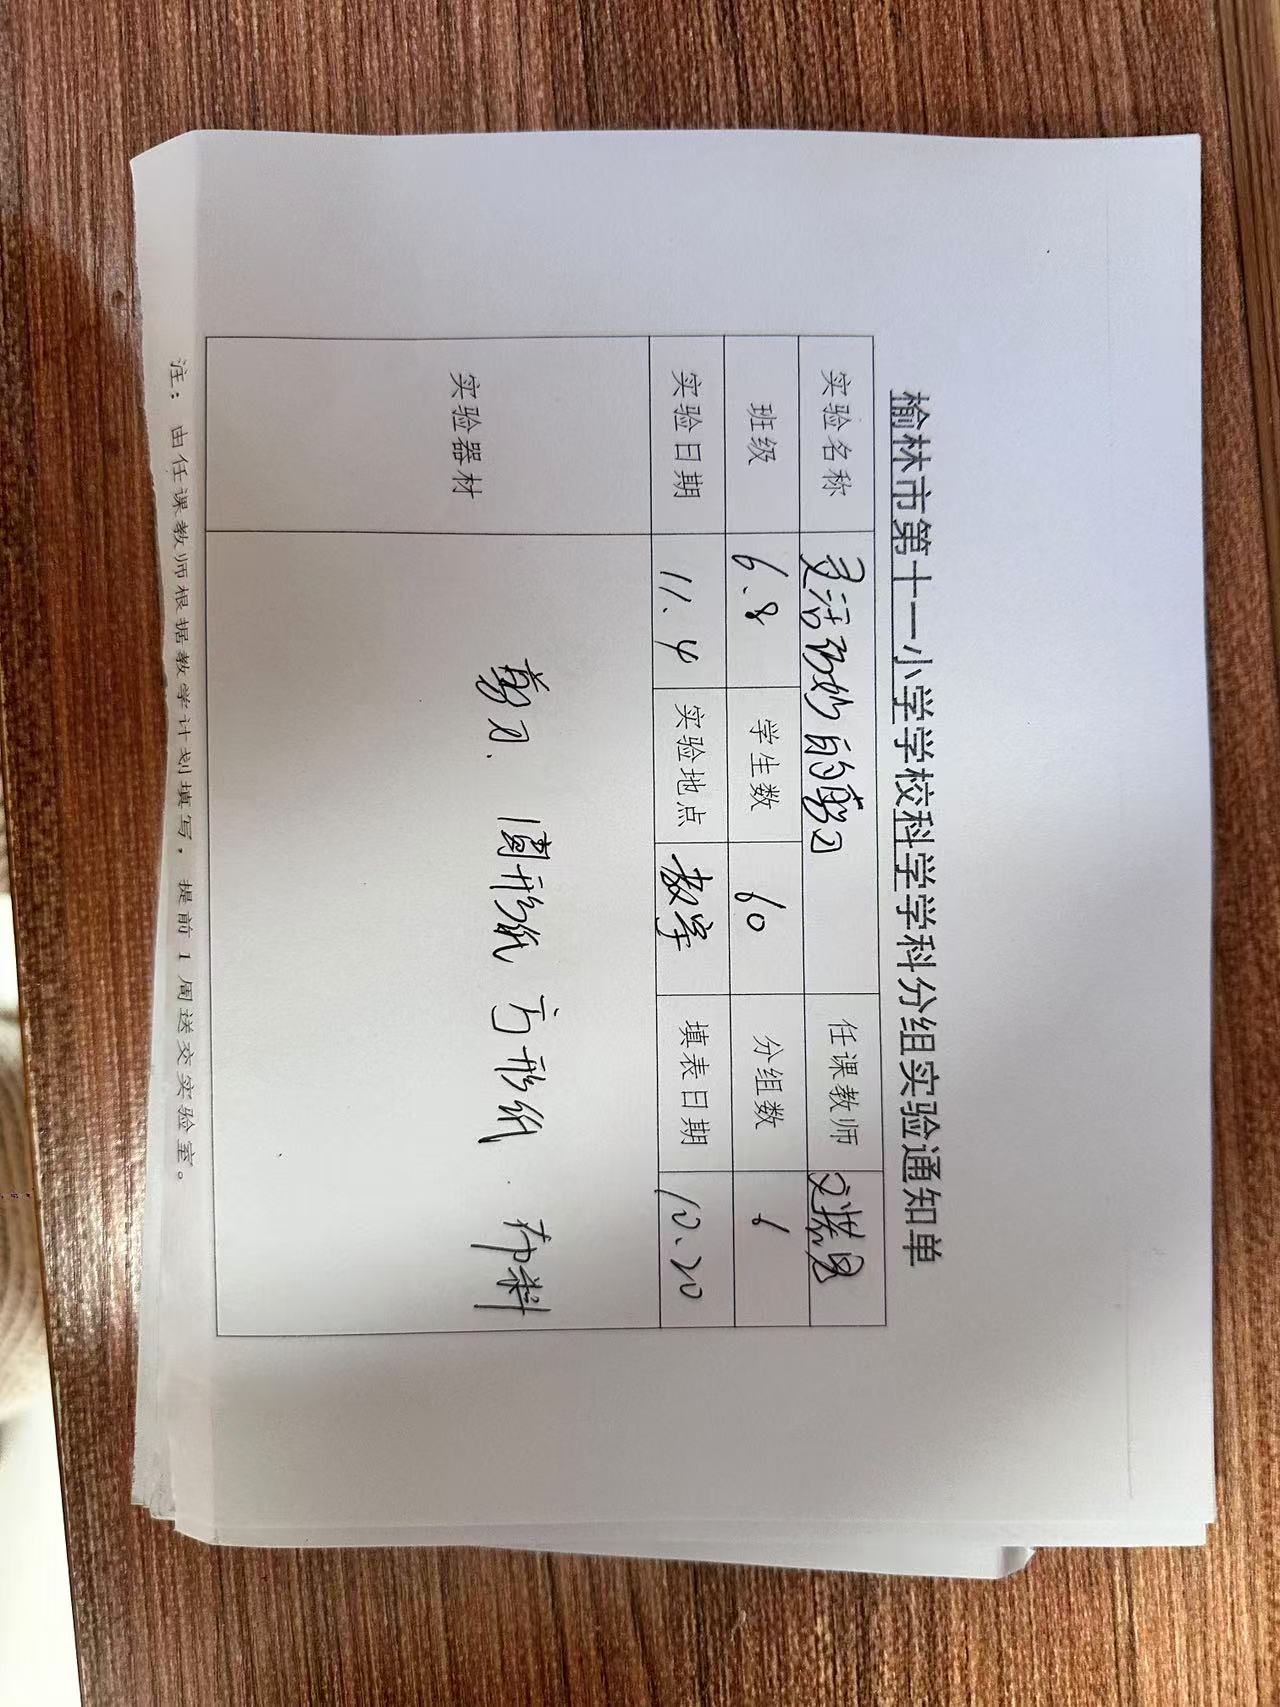 榆林市第十一小学学校科学学科分组实验通知单
实验名称 灵活巧妙的剪刀 任课教师
班级 6.8 学生数 60 分组数 6
实验日期 11.4 实验地点 教室 填表日期 10.20
实验器材 剪刀、圆形纸 方形纸 布料
注：由任课教师根据教学计划填写，提前1周送交实验室。